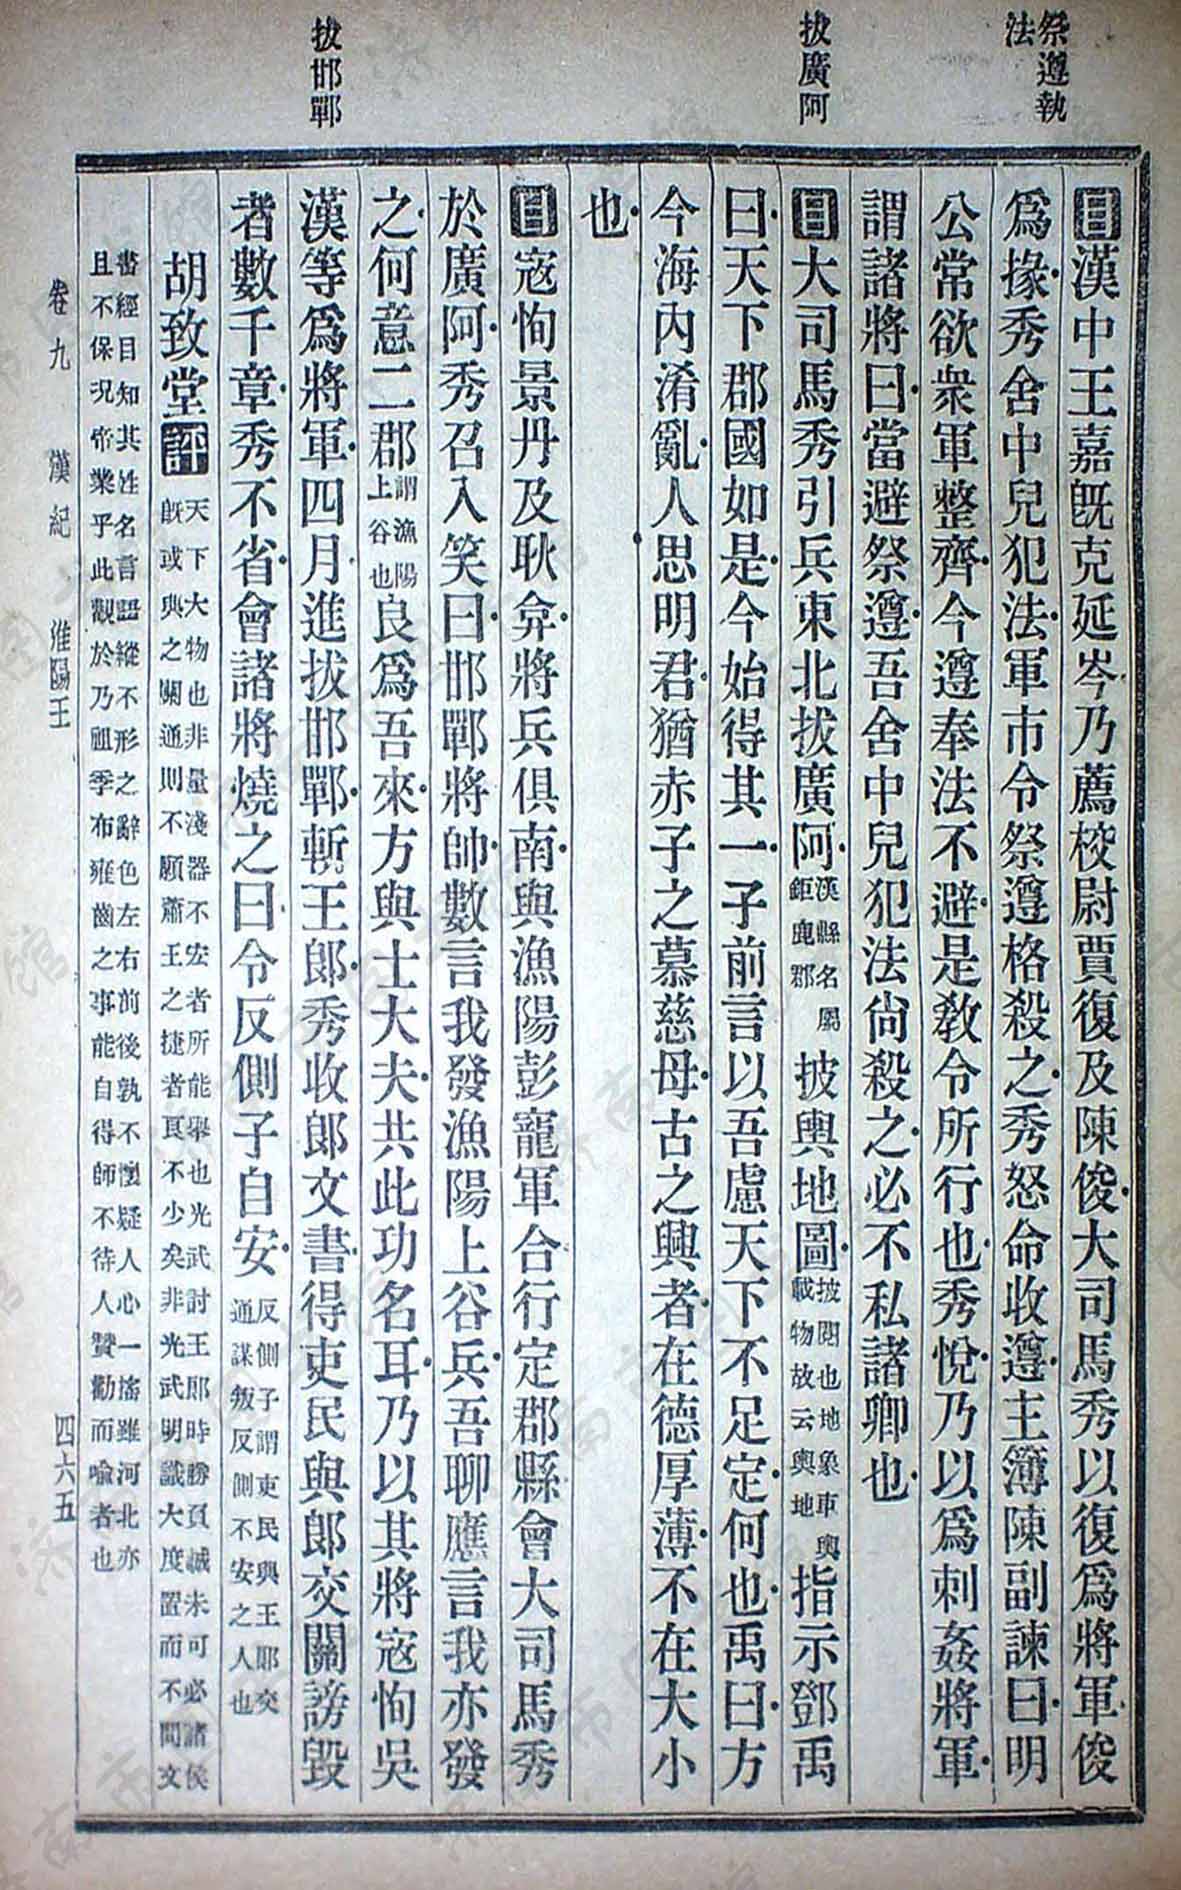 祭遵執
法
拔廣阿
拔邯鄲
目漢中王嘉旣克延岑乃薦校尉賈復及陳俊大司馬秀以復爲將軍俊
爲掾秀舍中兒犯法軍市令祭遵格殺之秀怒命收遵主簿陳副諫曰明
公常欲衆軍整齊今遵奉法不避是敎令所行也秀悅乃以爲刺姦將軍
謂諸將曰當避祭遵吾舍中兒犯法尙殺之必不私諸卿也
目大司馬秀引兵東北拔廣阿漢縣名屬鉅鹿郡披輿地圖披閱也地象車輿載物故云輿地指示鄧禹
曰天下郡國如是今始得其一子前言以吾慮天下不足定何也禹曰方
今海內淆亂人思明君猶赤子之慕慈母古之興者在德厚薄不在大小
也
目寇恂景丹及耿弇將兵俱南與漁陽彭寵軍合行定郡縣會大司馬秀
於廣阿秀召入笑曰邯鄲將帥數言我發漁陽上谷兵吾聊應言我亦發
之何意二郡謂漁陽上谷也良爲吾來方與士大夫共此功名耳乃以其將寇恂吳
漢等爲將軍四月進拔邯鄲斬王郞秀收郞文書得吏民與郞交關謗毀
者數千章秀不省會諸將燒之曰令反側子自安反側子謂吏民與王郞交通謀叛反側不安之人也
胡致堂評天下大物也非量淺器不宏者所能舉也光武討王郞時勝負誠未可必諸侯旣或與之關通則不願蕭王之捷者頁不少矣非光武明識大度置而不問文
書經目知其姓名言語縱不形之辭色左右前後孰不懷疑人心一搖雖河北亦且不保況帝業乎此觀於乃祖季布雍齒之事能自得師不待人贊勸而喩者也
卷九 漢紀 淮陽王 四六五